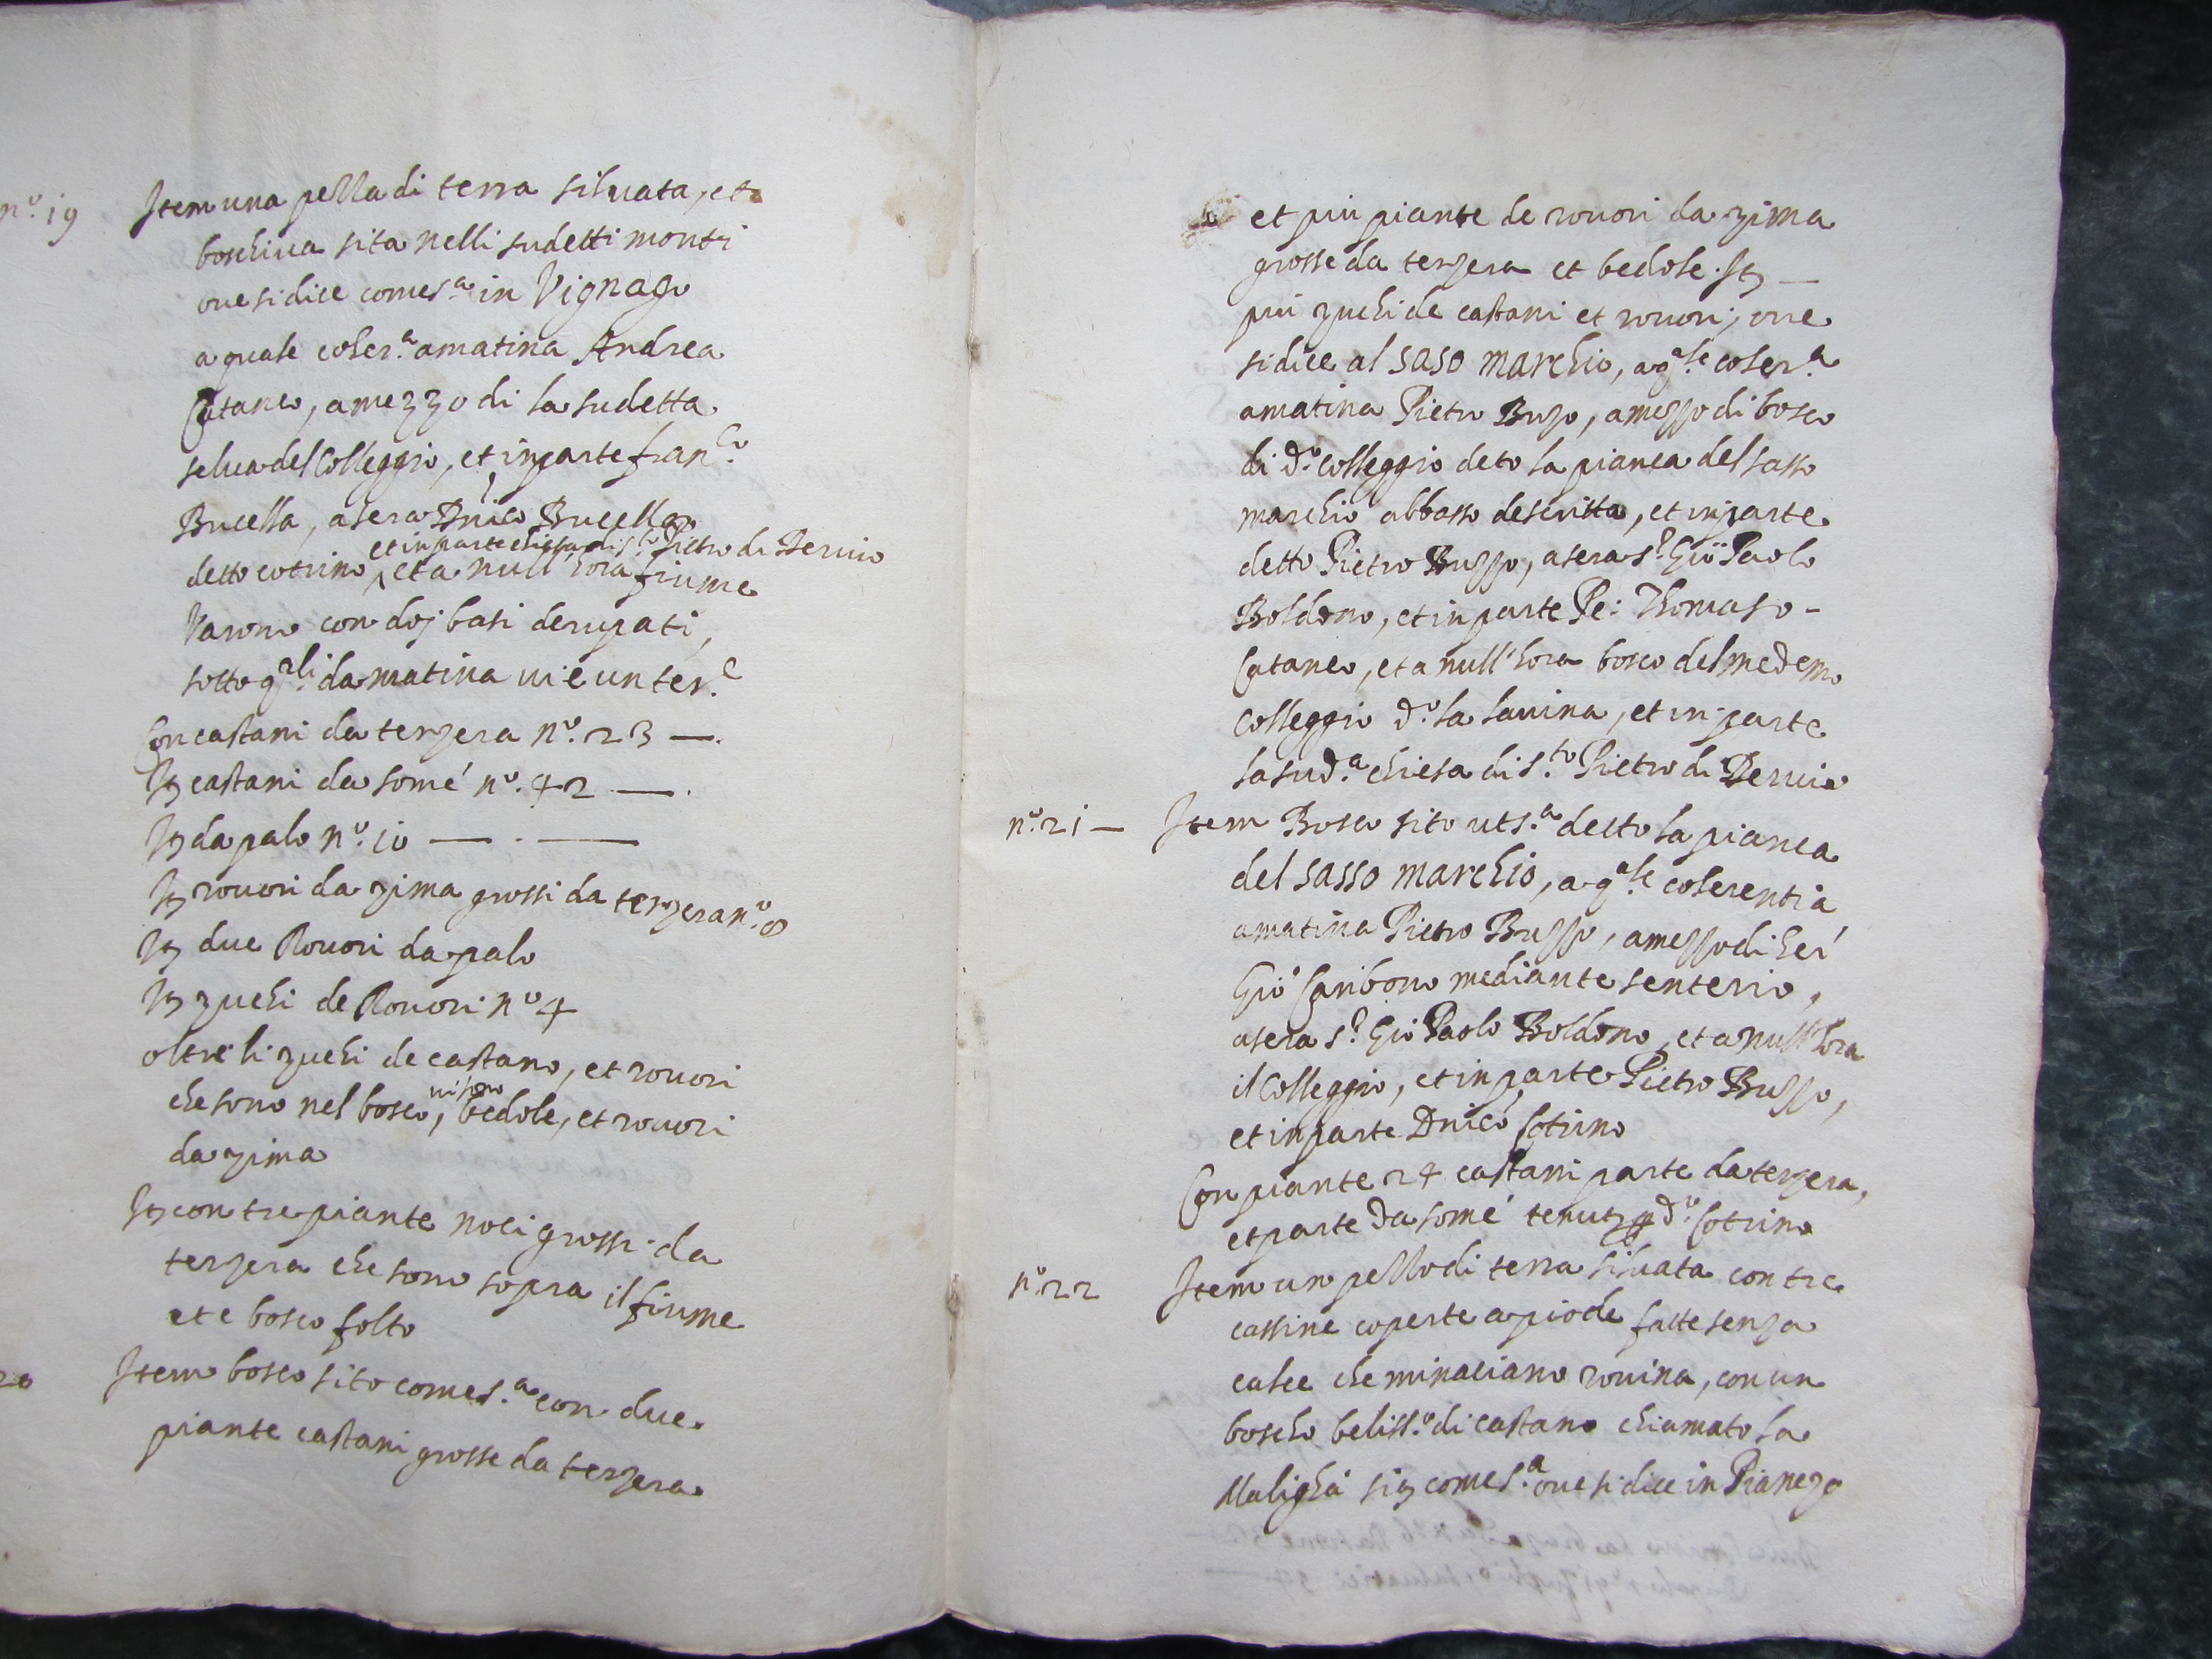 n.º 19 Item una pezza di terra siluata, et
boschiua sita nelli sudetti monti
oue si dice come s.ª in Vignago
a quale coher.ª a matina Andrea
Cataneo, a mezzo di la sudetta
selua del Colleggio, et in parte fran.co
Bucella, a sera Dnico Bucella
et in parte chiesa di s.to Pietro di Deruio
detto cotrino, et a null'hora fiume
Varono con doj basi derupati,
sotto q.ali da matina ui è un ter.º
Con castani da terzera nº. 23 —.
Itt castani da somé nº. 42 —.
Itt da palo nº. 10 — . —
Itt rouori da zima grossi da terzera nº. 8
Itt due Rouori da palo
Itt zuchi de Rouori nº 4
oltre li zuchi de castano, et rouori
ui sono
che sono nel bosco, bedole, et rouori
da zima
Itt con tre piante noci grossi da
terzera che sono sopra il fiume
et è bosco folto
20 Item bosco sito come s.ª con due
piante castani grosse da terzera
et piu piante de rouori da zima
grosse da terzera et bedole. Itt —
piu zuchi de castani et rouori, oue
si dice al saso marchio, a q.ale coher.ª
a matina Pietro Buzo, a mezzo di bosco
di d.º Colleggio deto la pianca del sasso
marchio abbasso descritta, et in parte
detto Pietro Buzzo, a sera s.r Giò Paolo
Boldono, et in parte Pe: Thomaso -
Cataneo, et a null'hora bosco del medemo
Colleggio d.º la lauina, et in parte
la sud.ª chiesa di s.to Pietro di Deruio
nº. 21 — Item Bosco sito ut s.ª detto la pianca
del sasso marchio, a q.ale coherentia
a matina Pietro Buzzo, a mezzo di her.i
Giò Canbono mediante senterio,
a sera s.r Giò Paolo Boldono, et a null'hora
il Colleggio, et in parte Pietro Buzzo,
et in parte Dnico Cotrino
Con piante 24 castani parte da terzera,
et parte da somé d.º Cotrino
nº. 22 Item un pezzo di terra siluata con tre
cassine coperte a piode fatte senza
calce che minaciano rouina, con un
boscho beliss.º di castano chiamato la
Maligha sitt come s.ª oue si dice in Pianezo